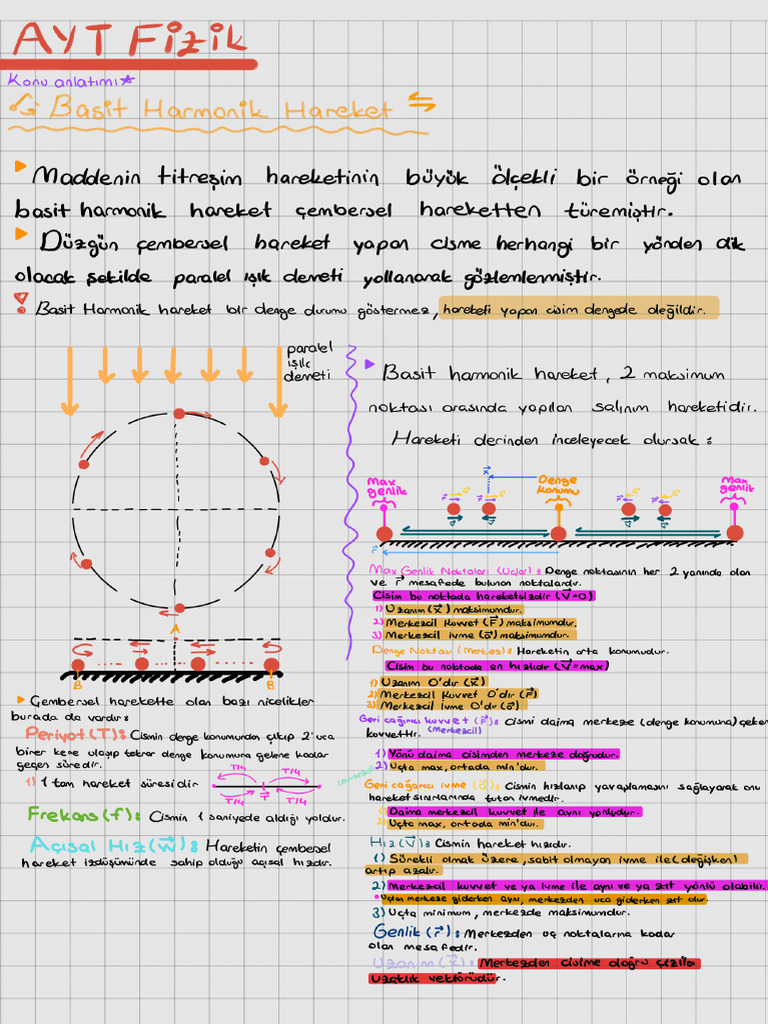 AYT Fizik
Konu anlatımı
Basit Harmonik Hareket
Maddenin titreşim hareketinin büyük ölçekli bir örneği olan
basit harmonik hareket çembersel hareketten türemiştir.
Düzgün çembersel hareket yapan cisme herhangi bir yönden dik
olacak şekilde paralel ışık demeti yollanarak gözlemlenmiştir.
Basit Harmonik hareket bir denge durumu göstermez, hareketi yapan cisim dengede değildir.
paralel
ışık
demeti
A
B
B
Çembersel harekette olan bazı nicelikler
burada da vardır:
Periyot (T): Cismin denge konumundan çıkıp 2 uca
birer kere ulaşıp tekrar denge konumuna gelene kadar
geçen süredir.
1) 1 tam hareket süresidir
T/4 T/4
T/4 T/4
Frekans (f): Cismin 1 saniyede aldığı yoldur.
Açısal Hız (w): Hareketin çembersel
hareket izdüşümünde sahip olduğu açısal hızdır.
Basit harmonik hareket, 2 maksimum
noktası arasında yapılan salınım hareketidir.
Hareketi derinden inceleyecek olursak:
Max
genlik
x
Denge
konumu
Max
genlik
r
Max Genlik Noktaları (Uçlar): Denge noktasının her 2 yanında olan
ve r mesafede bulunan noktalardır.
Cisim bu noktada hareketsizdir (V=0)
1) Uzanım (x) maksimumdur.
2) Merkezcil kuvvet (F) maksimumdur.
3) Merkezcil ivme (a) maksimumdur.
Denge Noktası (Merkez): Hareketin orta konumudur.
Cisim bu noktada en hızlıdır (V=max)
1) Uzanım 0'dır (x)
2) Merkezcil Kuvvet 0'dır (F)
3) Merkezcil İvme 0'dır (a)
Geri çağırıcı kuvvet (F): Cismi daima merkeze (denge konumuna) çeken
kuvvettir. (merkezcil)
1) Yönü daima cisimden merkeze doğrudur.
2) Uçta max, ortada min'dur.
(merkezcil)
Geri çağırıcı ivme (a): Cismin hızlanıp yavaşlamasını sağlayarak onu
hareket sınırlarında tutan ivmedir.
1) Daima merkezcil kuvvet ile aynı yönlüdür.
2) Uçta max, ortada min'dur.
Hız (V): Cismin hareket hızıdır.
1) Sürekli olmak üzere, sabit olmayan ivme ile (değişken)
artıp azalır.
2) Merkezcil kuvvet ve ya ivme ile aynı ve ya zıt yönlü olabilir.
Uçtan merkeze giderken aynı, merkezden uca giderken zıt olur.
3) Uçta minimum, merkezde maksimumdur.
Genlik (r): Merkezden uç noktalarına kadar
olan mesafedir.
Uzanım (x): Merkezden cisime doğru çizilen
uzaklık vektörüdür.